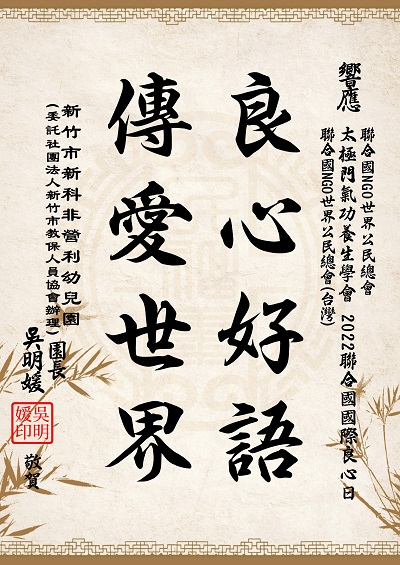 響應
聯合國NGO世界公民總會
太極門氣功養生學會 2022聯合國國際良心日
聯合國NGO世界公民總會(台灣)
良心好語
傳愛世界
新竹市新科非營利幼兒園
(委託社團法人新竹市教保人員協會辦理)
園長
吳明媛
吳明媛印
敬賀